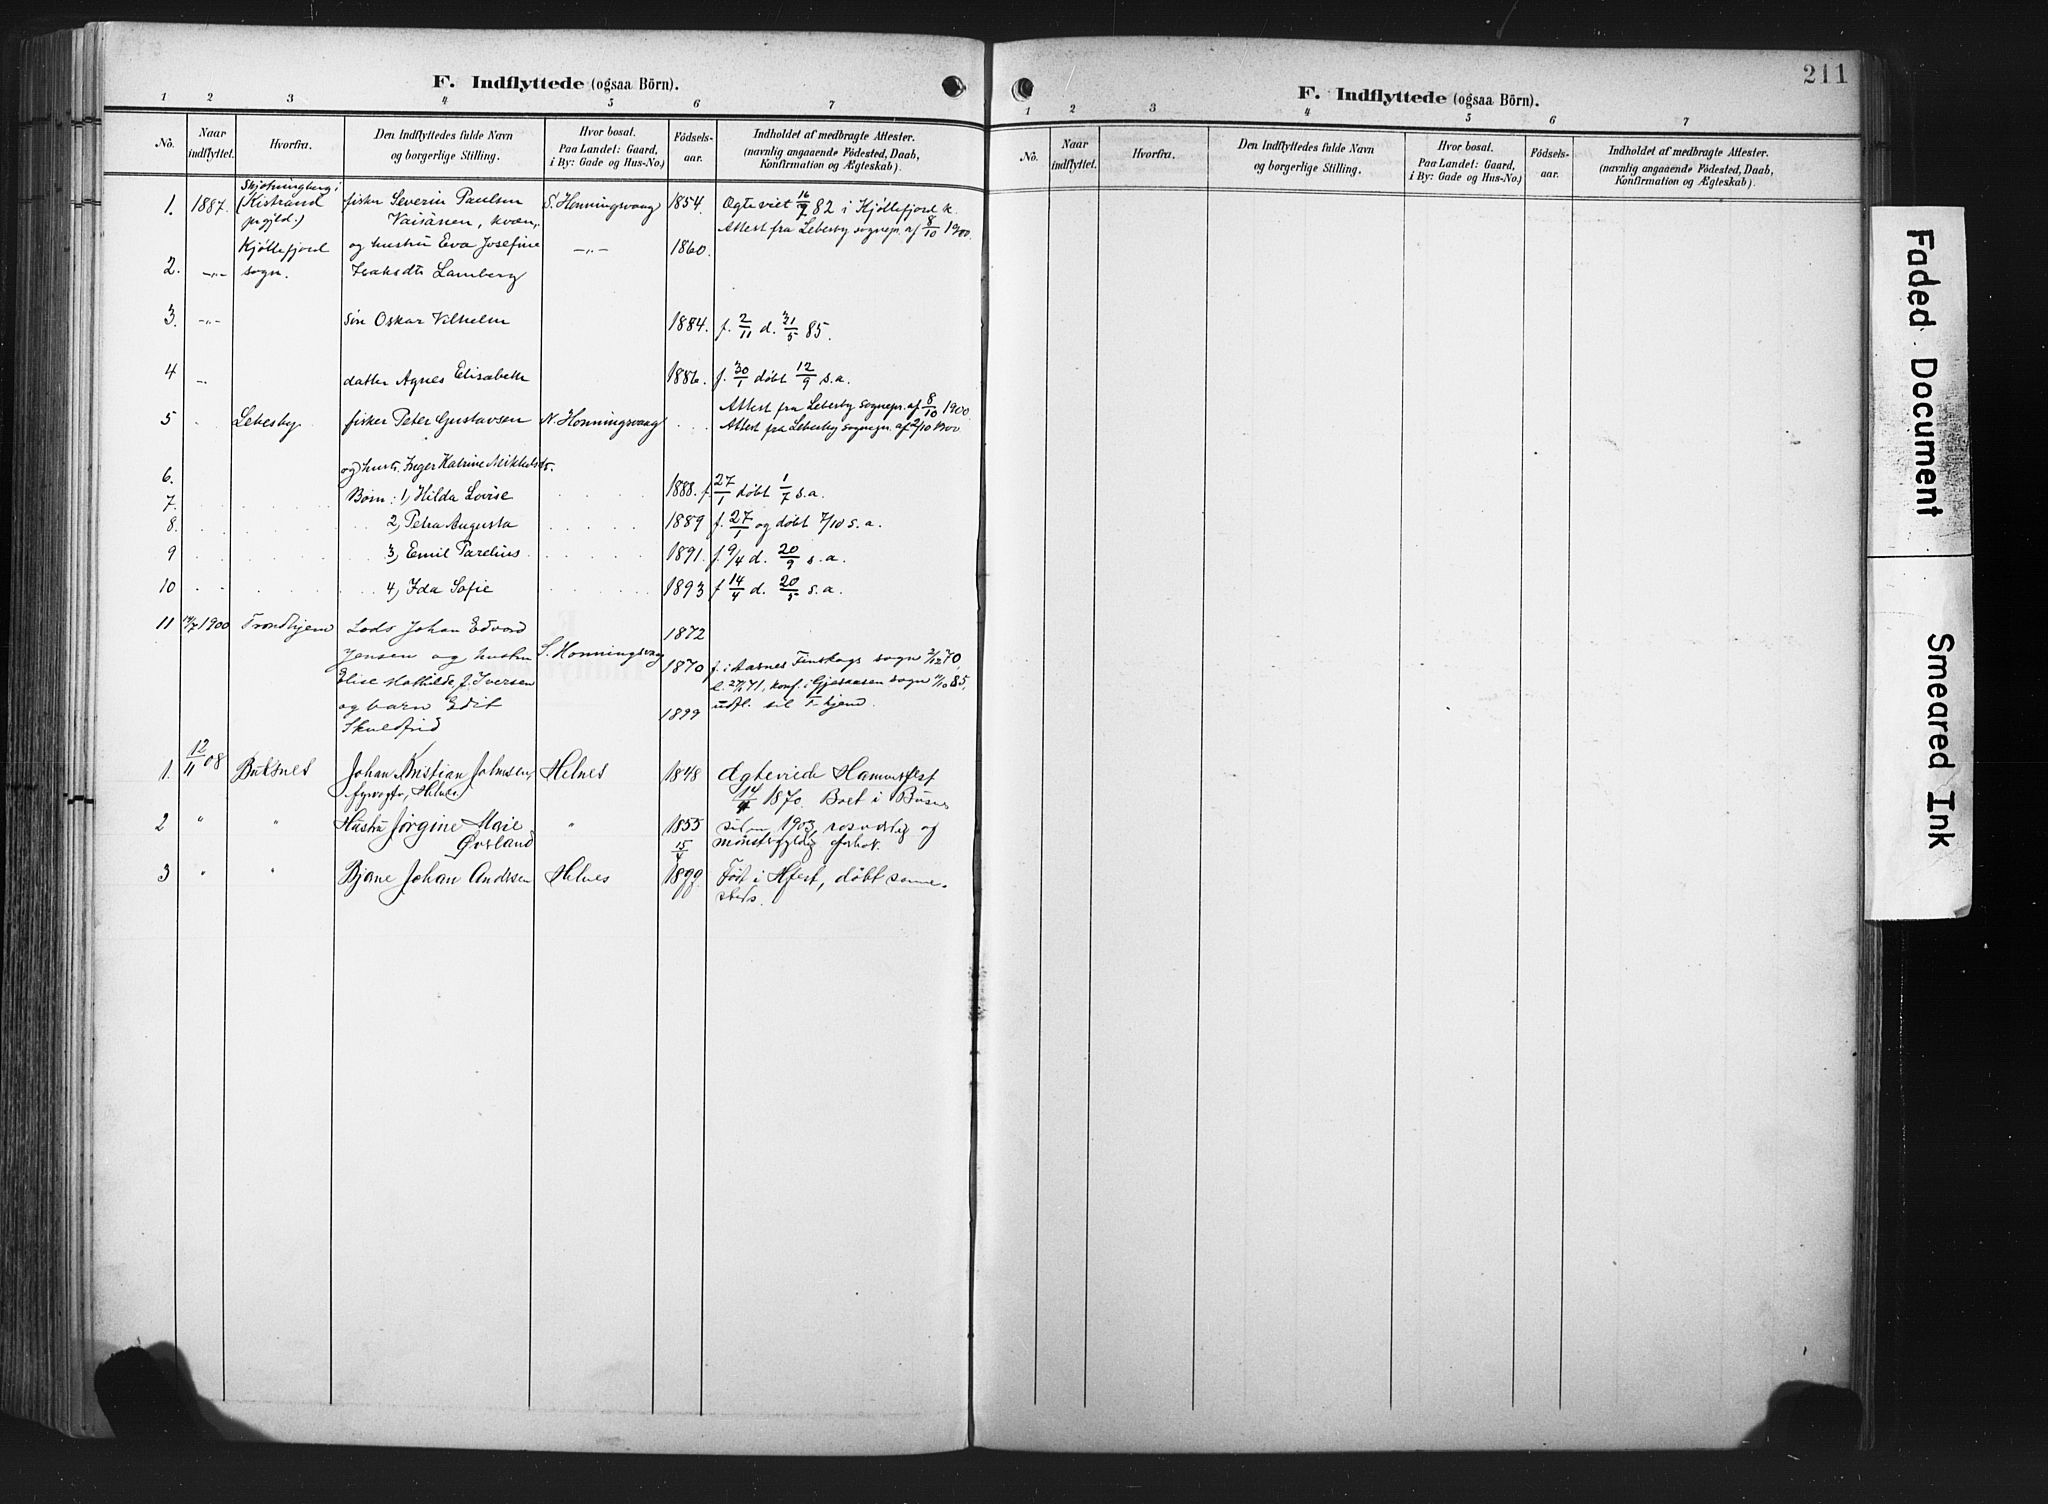 F. Indflyttede (ogsaa Börn).
1 2 3 4 5 6 7
No. Naar indflyttet. Hvorfra. Den Indflyttedes fulde Navn og borgerlige Stilling. Hvor bosat. Paa Landet: Gaard, i By: Gade og Hus-No.) Födsels-aar. Indholdet af medbragte Attester. (navnlig angaaende Födested, Daab, Konfirmation og Ægteskab).
1. 1887. Skjötningberg i (Kistrand prgjld.) fisker Severin Paulsen Vaisänen, kvæn, S. Honningsvaag 1854. Ægteviet 16/7 82 i Kjöllefjord k. Attest fra Lebesby sognepr. af 8/10 1900.
2. -"- Kjöllefjord sogn. og hustru Eva Josefine Isaksdtr Lamberg -"- 1860.
3. -"- sön Oskar Vilhelm 1884. f. 2/11 d. 31/5 85.
4 -"- datter Agnes Elisabeth 1886. f. 30/1 döbt 12/9 s.a.
5 Lebesby fisker Peter Gustavsen N. Honningsvaag Attest fra Lebesby sognepr. af 8/10 1900
Attest fra Lebesby sognepr. af 2/10 1900
6. og hustr. Inger Katrine Mikkelsdt.
7. Börn: 1, Hilda Lovise 1888. f. 27/1 döbt 1/7 s.a.
8. 2, Petra Augusta 1889 f. 27/1 og döbt 7/10 s.a.
9 3, Emil Parelius 1891. f. 9/4 d. 20/9 s.a.
10 4, Ida Sofie 1893 f 14/4 d. 20/5 s.a.
11 1900 Trondhjem Lods Johan Edvard 1872
Jensen og hustru S. Honningsvaag 1870 f. i Aasnes Finskogs sogn 2/12 70,
Elise Mathilde, f. Iversen konf. i Gjesaasen sogn 85,
og barn Edit 1899 udfl. til T-hjem.
Skuldfrid
1. 12/11 08 Buksnes Johan Kristian Johnsen, fyrvogter, Helnes Helnes 1848 Ægteviede Hammerfest 14/4 1870. Boet i Busnes
2 " " Hustru Jørgine Marie Øvrland " 1855 til 1903, rosværdig og mønstergyldig forhold.
3 " " Bjarne Johan Andersen Helnes 15/4 1899 Født i Hfest, døbt sammesteds.
211
F. Indflyttede (ogsaa Börn).
1 2 3 4 5 6 7
No. Naar indflyttet. Hvorfra. Den Indflyttedes fulde Navn og borgerlige Stilling. Hvor bosat. Paa Landet: Gaard, i By: Gade og Hus-No.) Födsels-aar. Indholdet af medbragte Attester. (navnlig angaaende Födested, Daab, Konfirmation og Ægteskab).
Faded Document
Smeared Ink